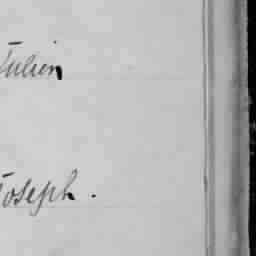 Julien
Joseph.